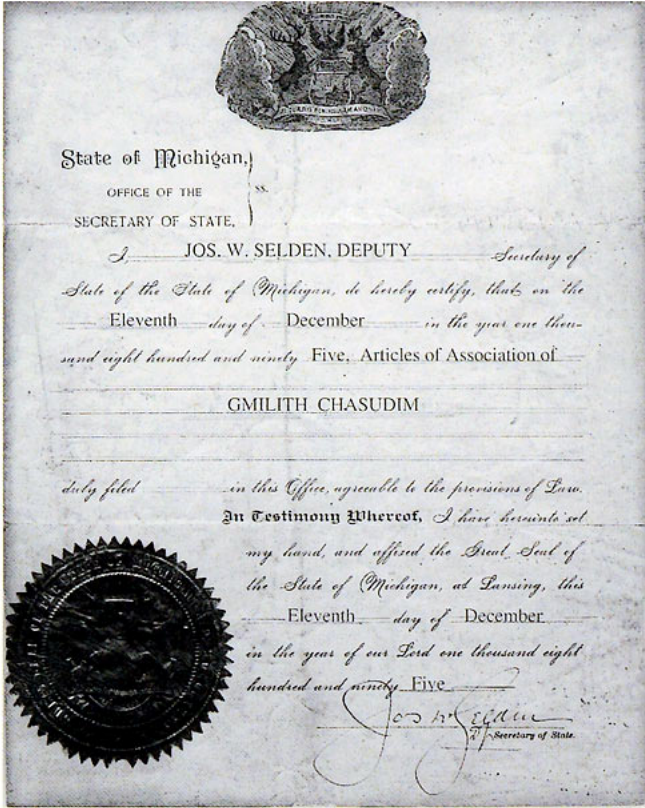 State of Michigan,
OFFICE OF THE
ss.
SECRETARY OF STATE.
I, JOS. W. SELDEN, DEPUTY Secretary of
State of the State of Michigan, do hereby certify, that on the
Eleventh day of December in the year one thou-
sand eight hundred and ninety Five, Articles of Association of
GMILITH CHASUDIM
duly filed in this Office, agreeable to the provisions of Law.
In Testimony Whereof, I have hereunto set
my hand, and affixed the Great Seal of
the State of Michigan, at Lansing, this
Eleventh day of December
in the year of our Lord one thousand eight
hundred and ninety Five
Jos W Selden
Secretary of State.